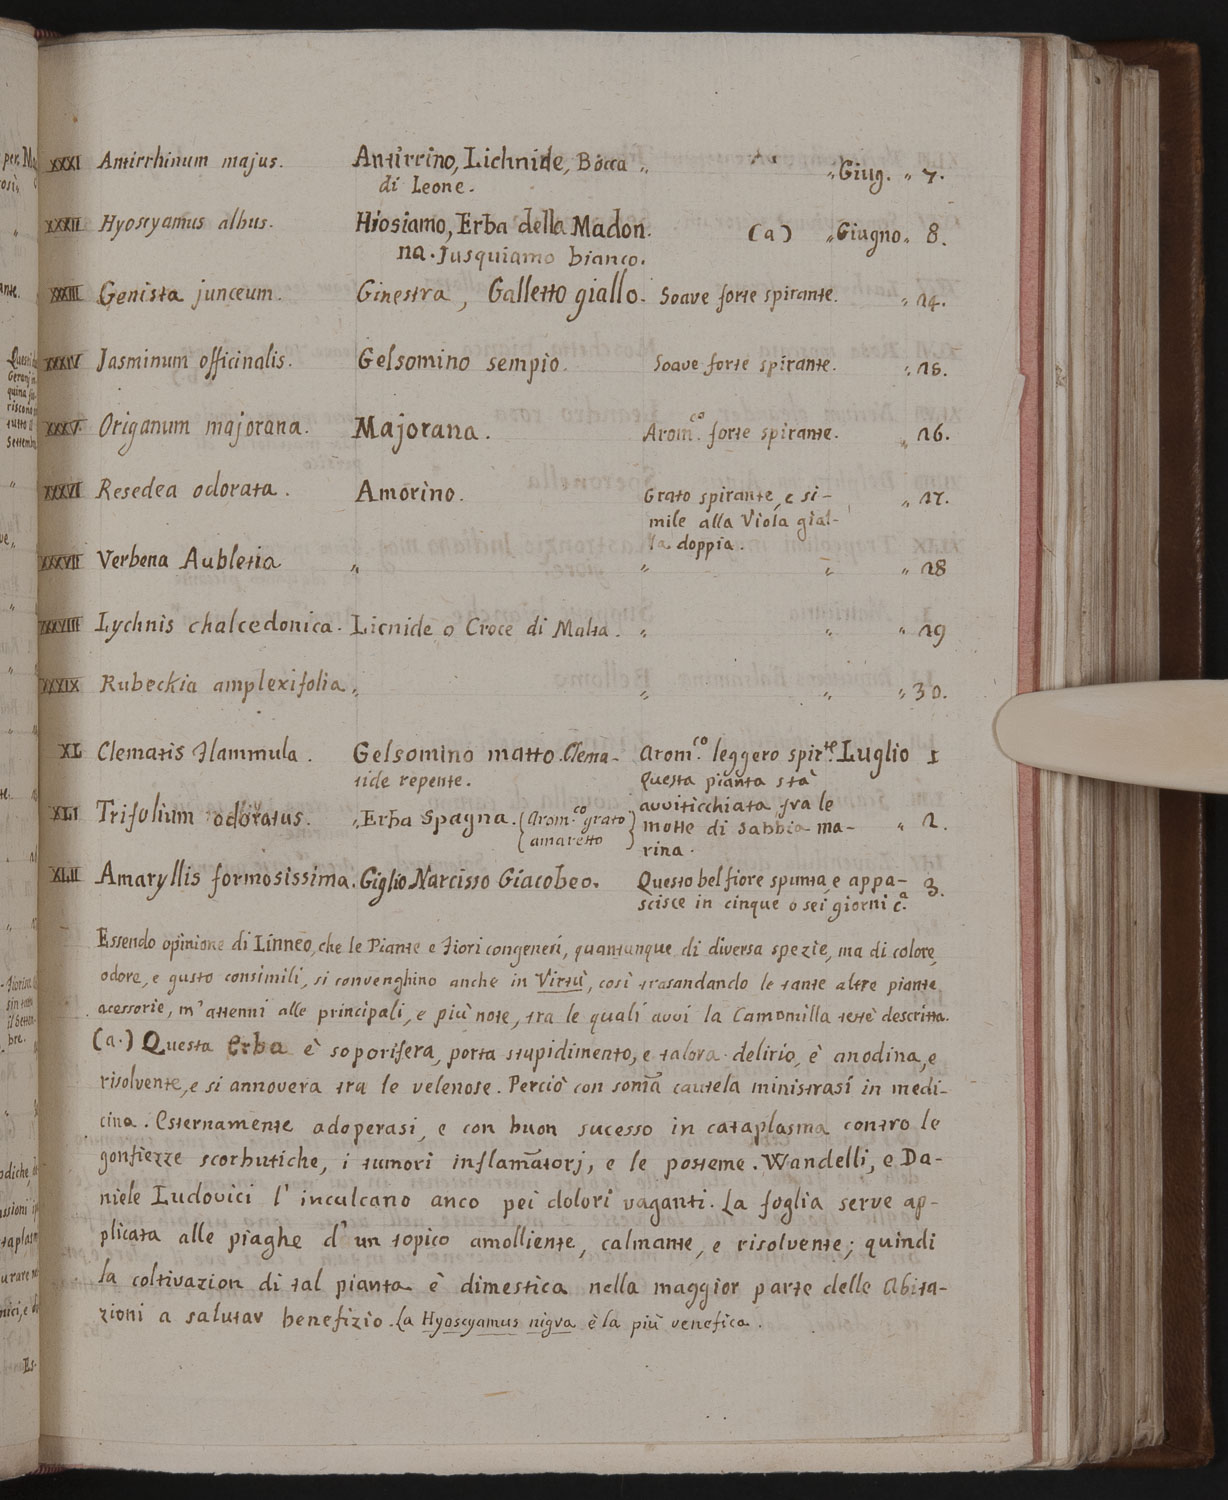 XXXI Antirrhinum majus. Antirrino, Lichnide, Bocca „ „Giug. „ 7.
di Leone.
XXXII Hyoscyamus albus. Hiosiamo, Erba della Madon- (a) „Giugno„ 8.
na. Jusquiamo bianco.
XXXIII Genista junceum. Ginestra, Galletto giallo. Soave forte spirante. „ 14.
XXXIV Jasminum officinalis. Gelsomino sempio. Soave forte spirante. „ 15.
XXXV. Origanum majorana. Majorana. Arom.co forte spirante. „ 16.
XXXVI Resedea odorata. Amorino. Grato spirante, e si- „ 17.
mile alla Viola gial-
la doppia.
XXXVII Verbena Aubletia „ „ „ „ 18
XXXVIII Lychnis chalcedonica. Licnide o Croce di Malta. „ „ „ 19
XXXIX Rubeckia amplexifolia „ „ „ „ 30.
XL Clematis flammula. Gelsomino matto. Clema- Arom.co leggero spir.te Luglio 1
tide repente. Questa pianta stà
avviticchiata fra le
XLI Trifolium odoratus. „Erba Spagna. (Arom.co grato motte di sabbia ma- „ 2.
amaretto) rina.
XLII Amaryllis formosissima. Giglio Narcisso Giacobeo. Questo bel fiore spunta, e appa- 3.
scisce in cinque o sei giorni c.a
Essendo opinione di Linneo, che le Piante e fiori congeneri, quantunque di diversa spezie, ma di colore,
odore, e gusto consimili, si convenghino anche in Virtù, così trasandando le tante altre piante
acessorie, m'attenni alle principali, e più note, tra le quali avvi la Camomilla testè descritta.
(a.) Questa Erba è soporifera, porta stupidimento, e talora delirio, è anodina, e
risolvente, e si annovera tra le velenose. Perciò con som̅a cautela ministrasi in medi-
cina. Esternamente adoperasi, e con buon sucesso in cataplasma contro le
gonfiezze scorbutiche, i tumori inflam̅atorj, e le posteme. Wandelli, e Da-
niele Ludovici l'inculcano anco pei dolori vaganti. La foglia serve ap-
plicata alle piaghe d'un topico amolliente, calmante, e risolvente; quindi
la coltivazion di tal pianta è dimestica nella maggior parte delle Abita-
zioni a salutar benefizio. La Hyoscyamus nigra è la più venefica.